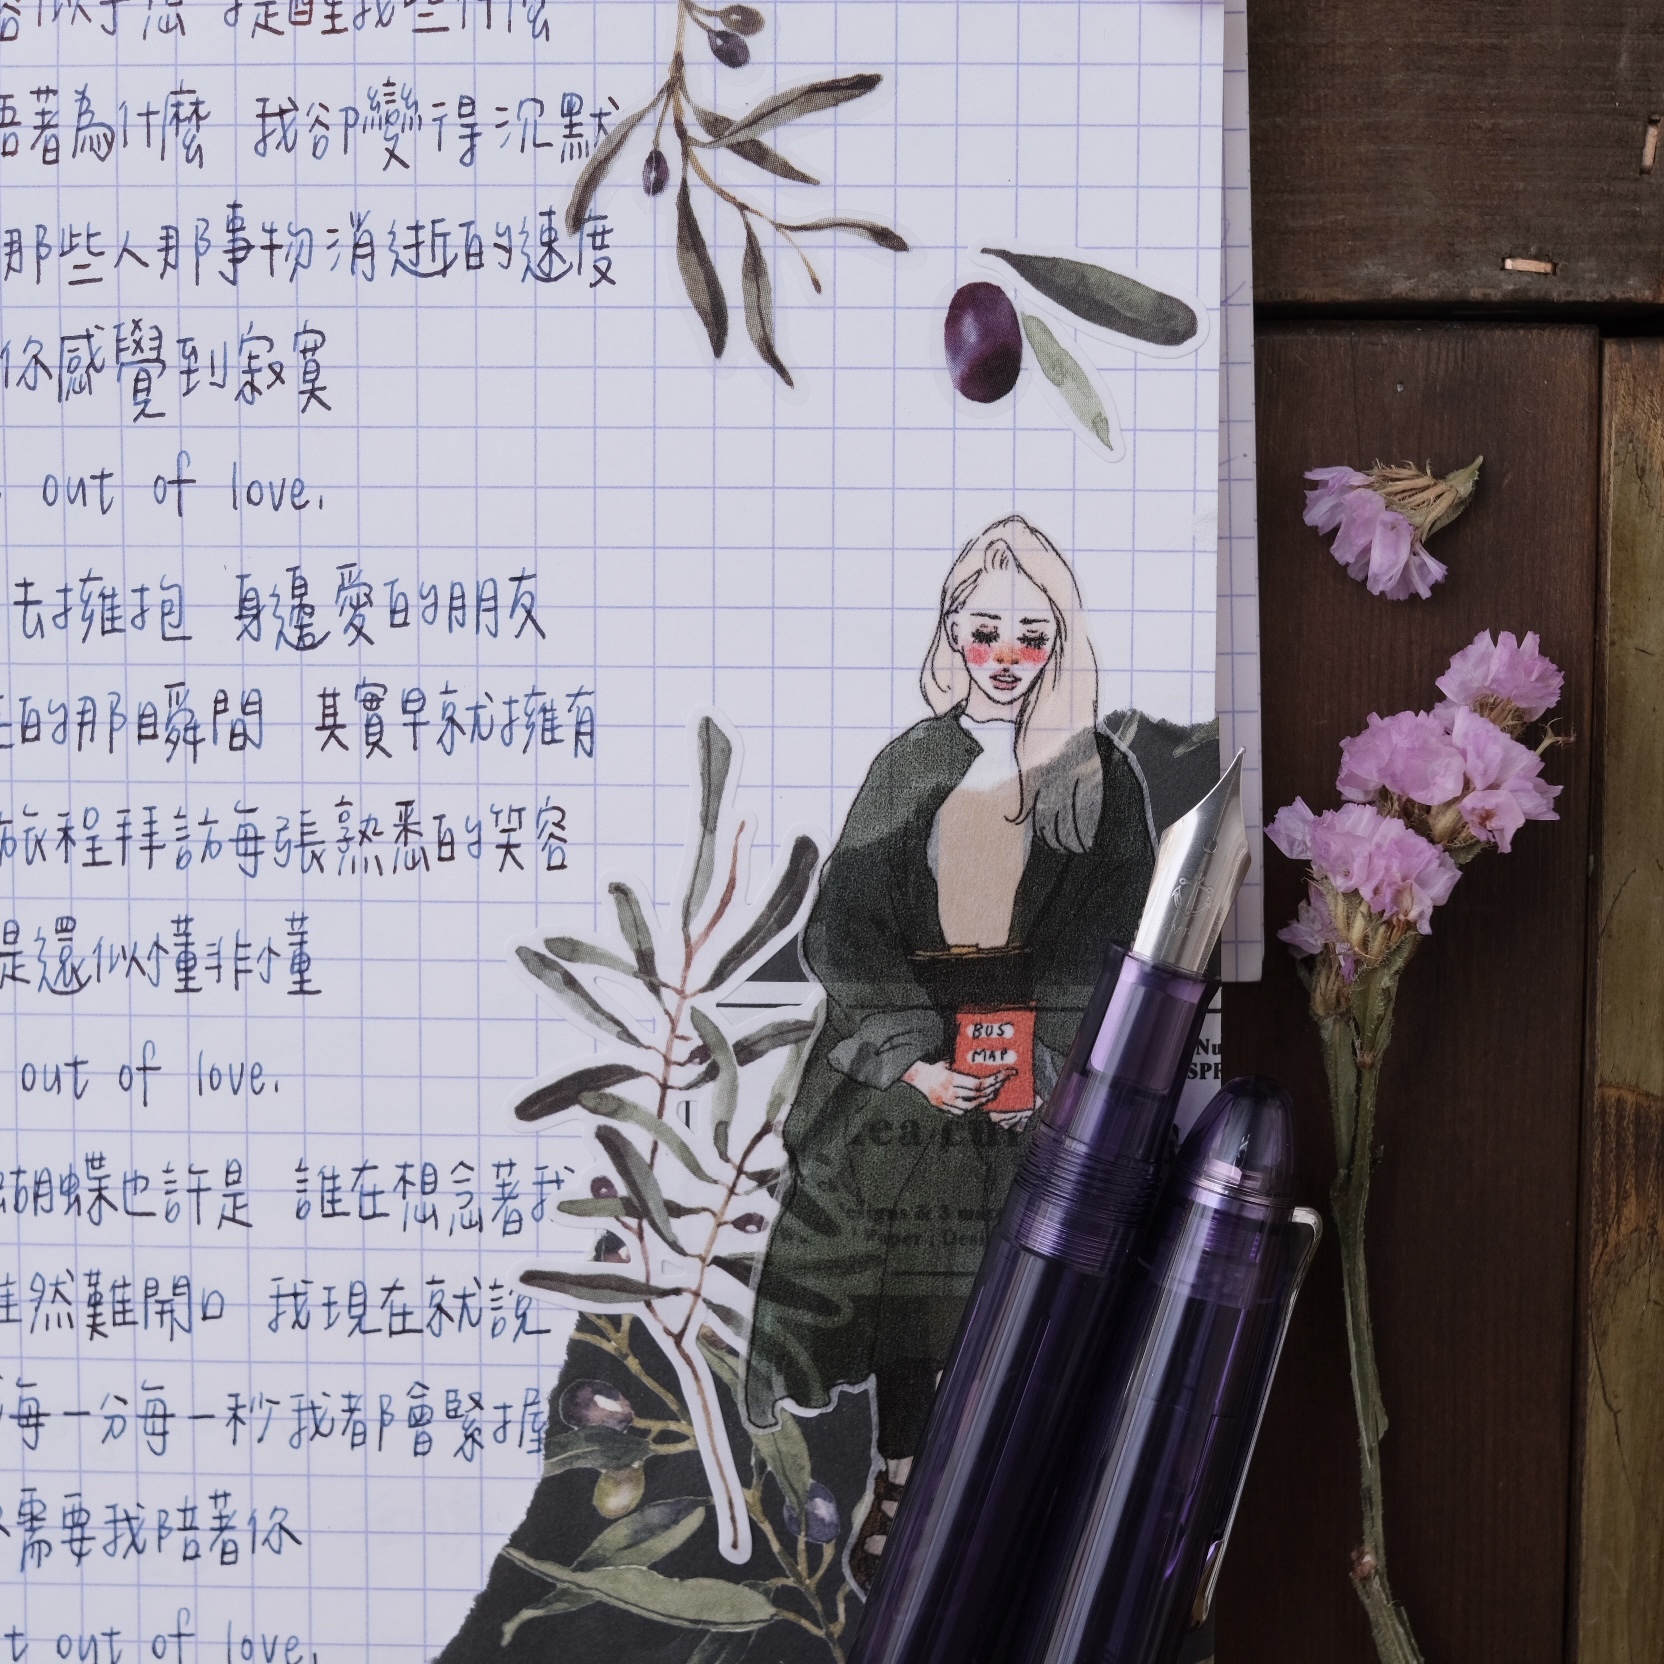 容似乎您 提醒我些什麼
著為什麼 我卻變得沉默
那些人那事物消逝的速度
你感覺到寂寞
out of love.
去擁抱 身邊愛的朋友
的那瞬間 其實早就擁有
旅程拜訪每張熟悉的笑容
是還似懂非懂
out of love.
蝴蝶也許是 誰在想念著我
雖然難開口 我現在就說
每一分每一秒我都會緊握
需要我陪著你
out of love.
BUS
MAP